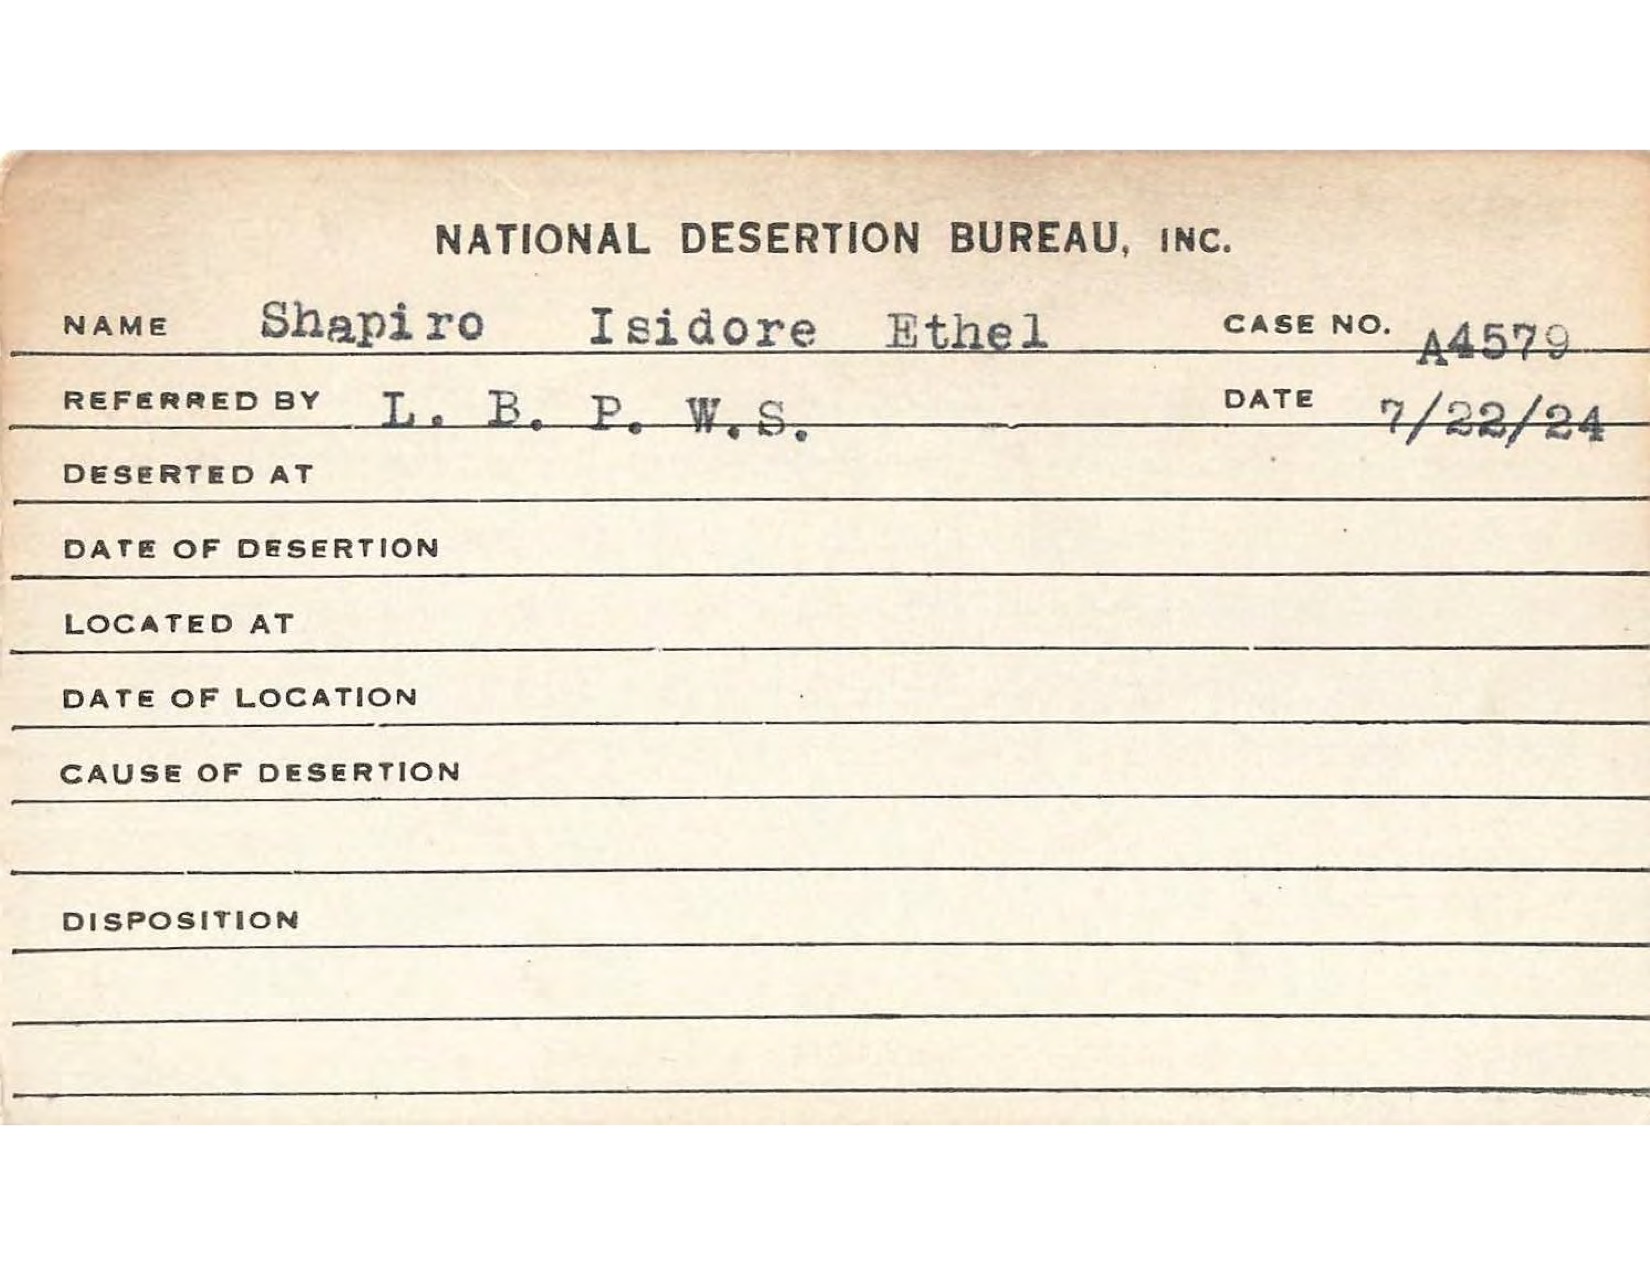 NATIONAL DESERTION BUREAU, INC.
NAME Shapiro Isidore Ethel CASE NO. A4579
REFERRED BY L. B. P. W.S. DATE 7/22/24
DESERTED AT
DATE OF DESERTION
LOCATED AT
DATE OF LOCATION
CAUSE OF DESERTION
DISPOSITION